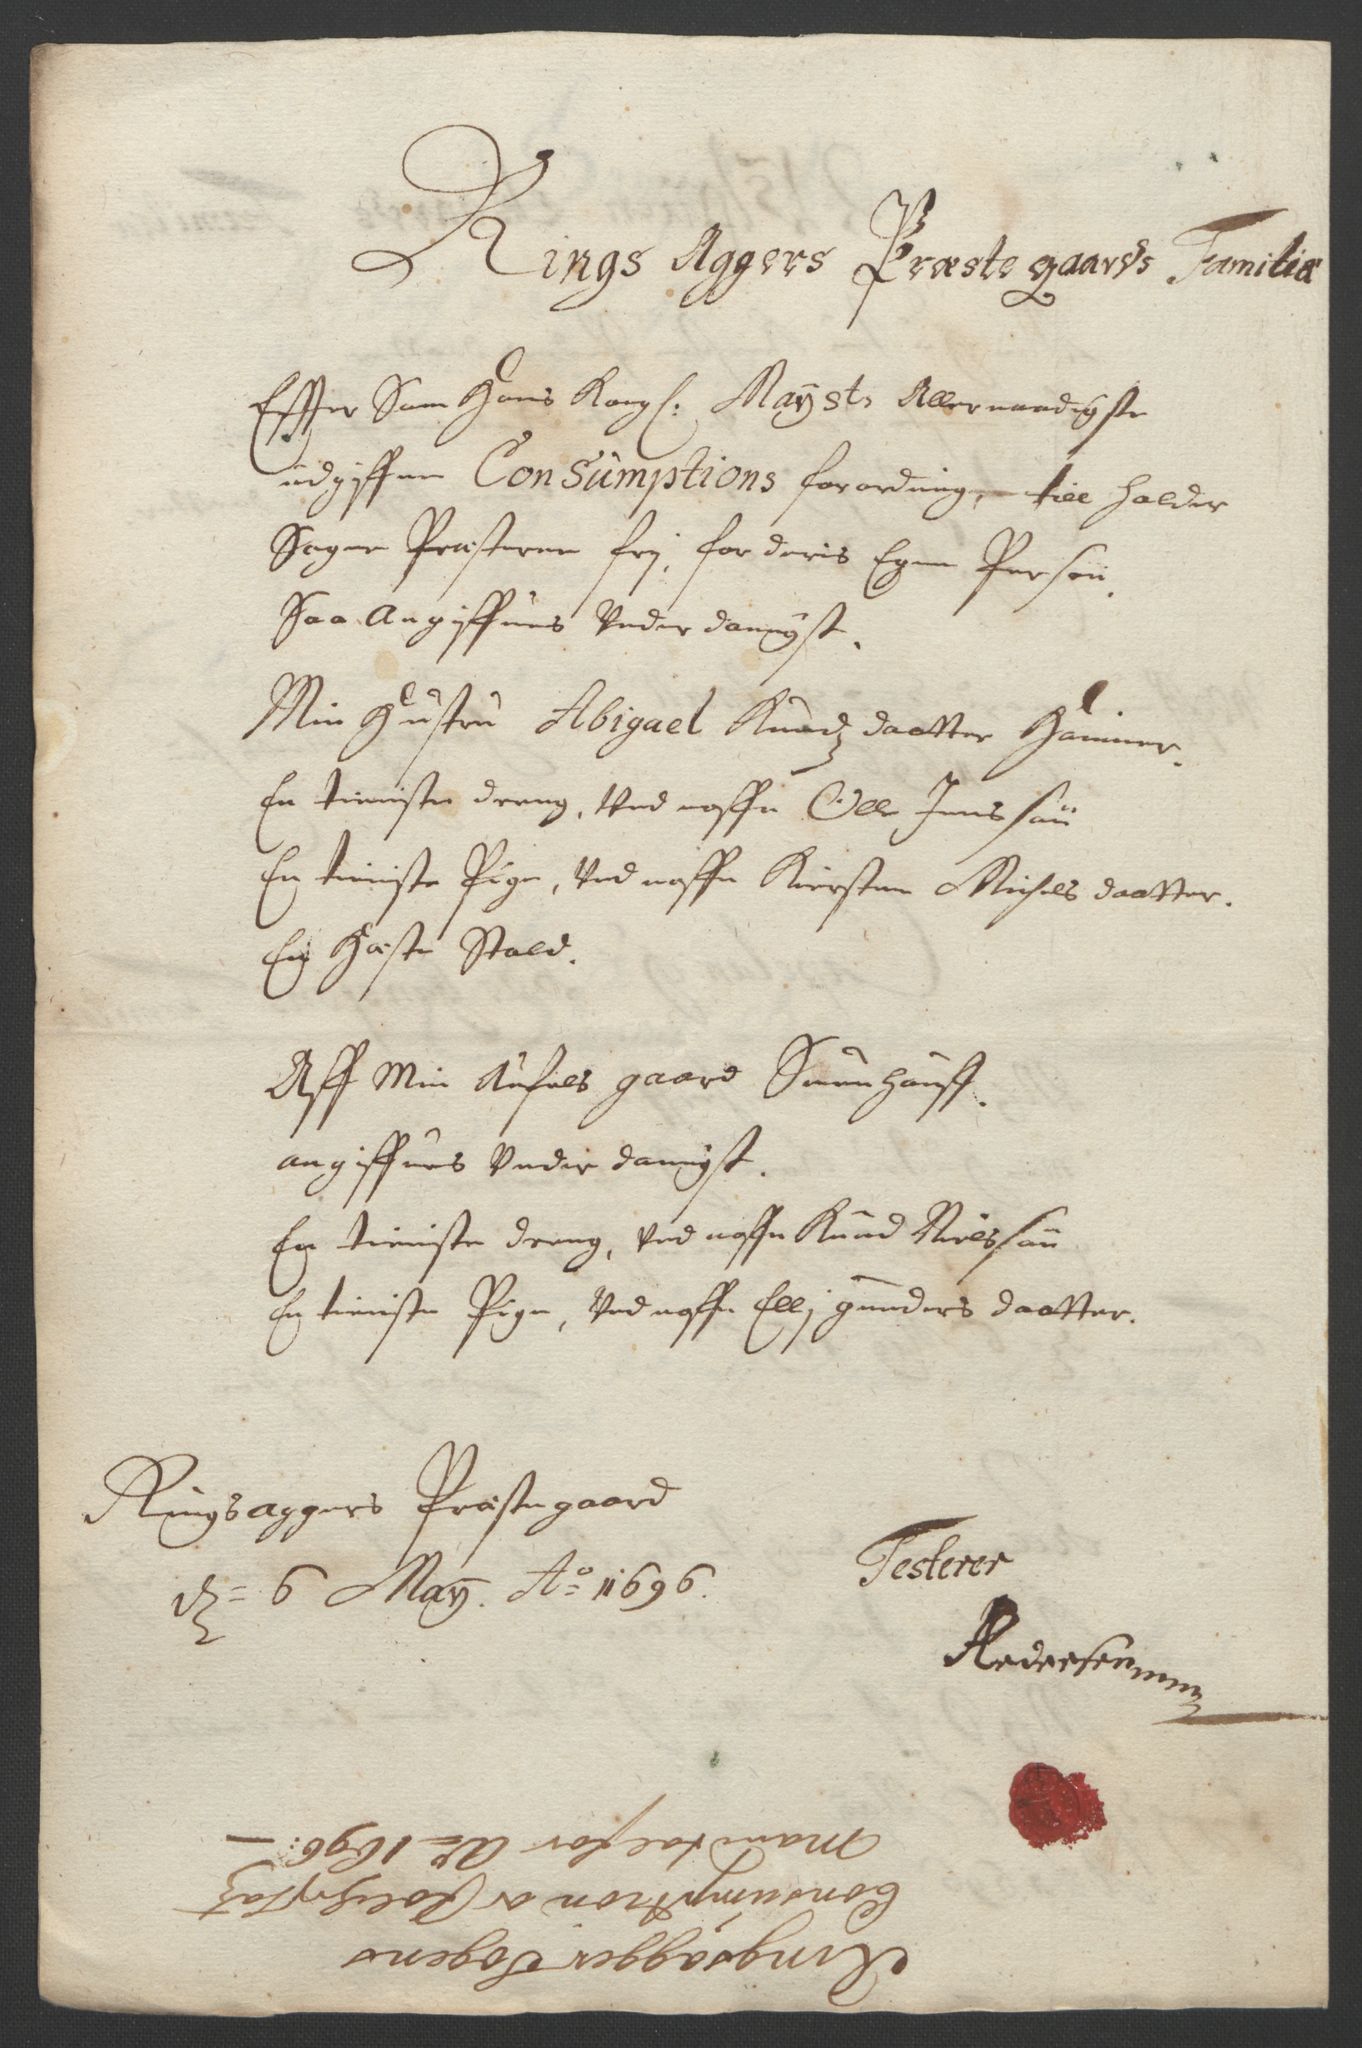 Rings Aggers Præstegaards Familia
Effter Som Hans Kongl: Mayst: Allernaadigste
udgiffne Consumptions forordning, till holder
Sogne Præsterne frj, for deris Egen Person,
Saa Angiffues Underdanigst.
Min Hustru Abigael Knudz daatter Hammer.
En tieniste dreng, Ved naffn Olle Jens søn
En tieniste Pige, Ved naffn Kiersten Michels daatter.
En Hæste Stald.
Aff Min Aufels gaard
angiffues Underdanigst.
En tieniste dreng, Ved naffn Knud Nielssøn
En tieniste Pige, Ved naffn Ellj Gunders daatter.
Ringsaggers Præstegaard
d. 6 May. Ao 1696.
Testerer
Ringsagger Sogens
Consumption og Folcheskat
Mandtal for Ao 1696: